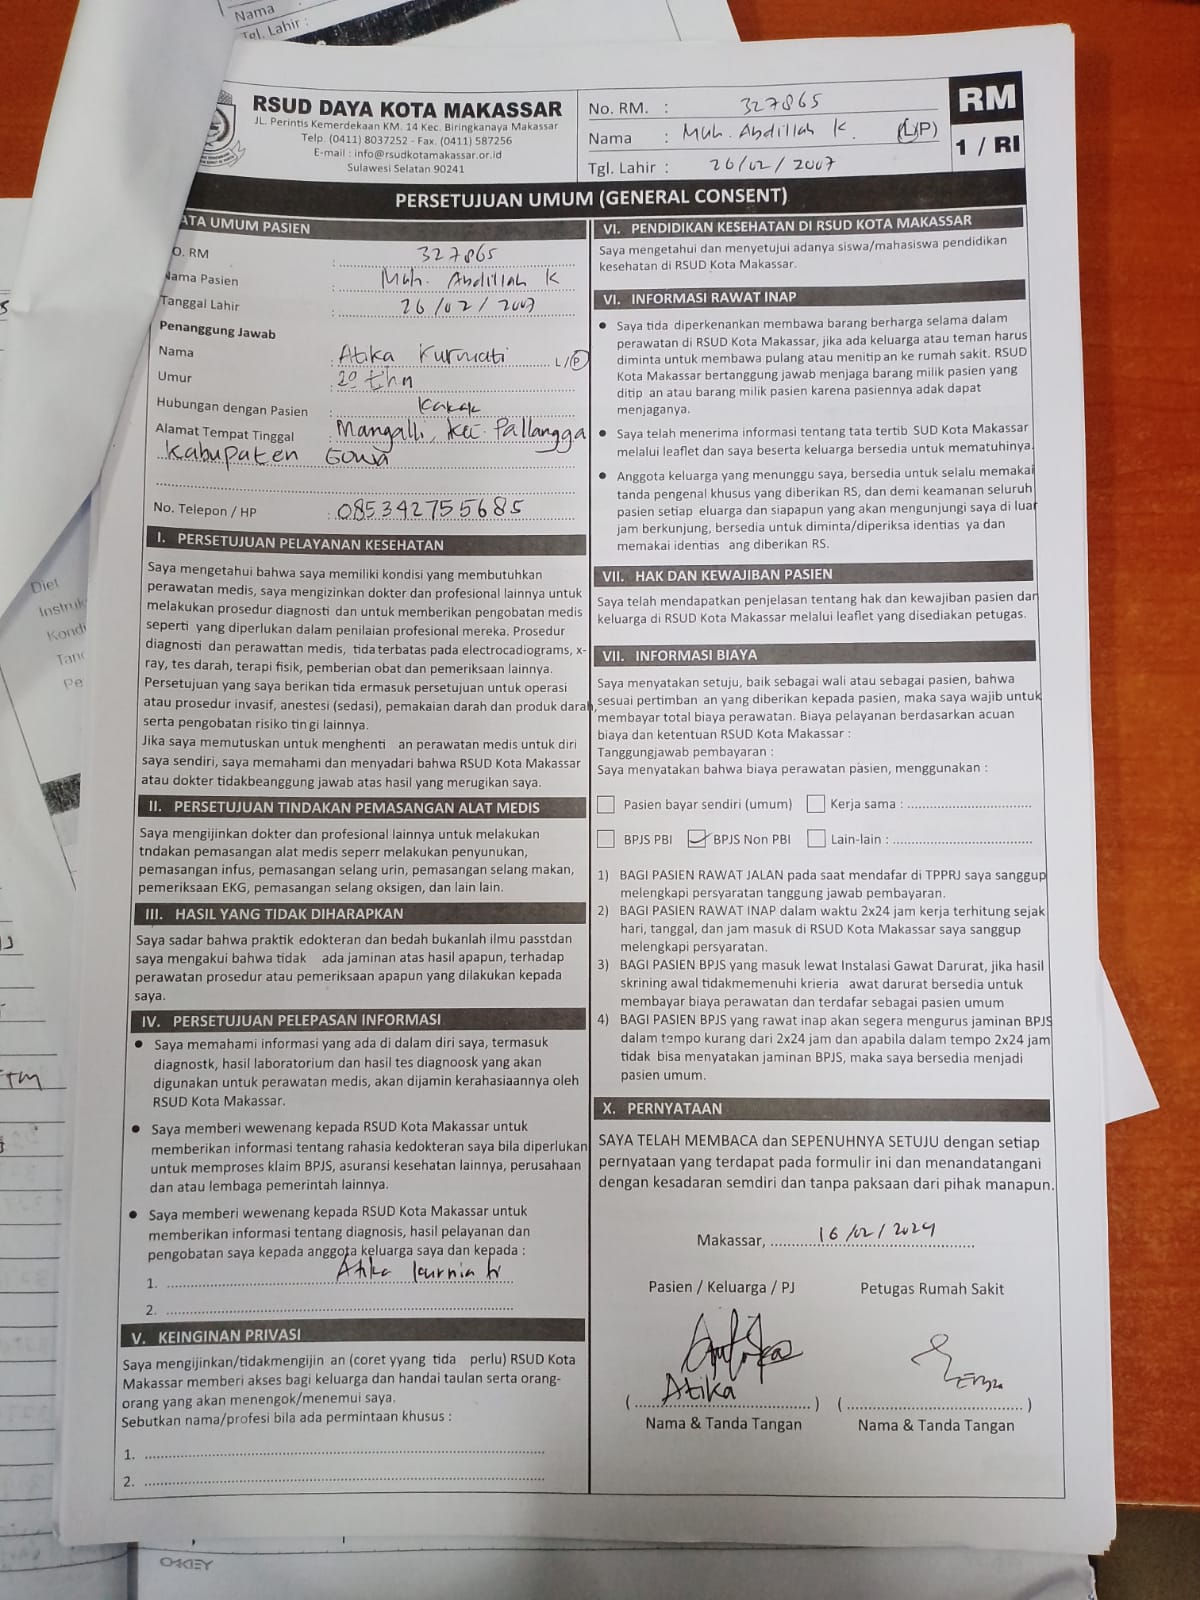 Nama
Tgl. Lahir :
RSUD DAYA KOTA MAKASSAR
JL. Perintis Kemerdekaan KM. 14 Kec. Biringkanaya Makassar
Telp. (0411) 8037252 - Fax. (0411) 587256
E-mail : info@rsudkotamakassar.or.id
Sulawesi Selatan 90241
No. RM. : 327865
Nama : Muh. Abdillah K. (L/P)
Tgl. Lahir : 26/02/2007
RM
1 / RI
PERSETUJUAN UMUM (GENERAL CONSENT)
ATA UMUM PASIEN
O. RM : 327865
Nama Pasien : Muh. Abdillah K
Tanggal Lahir : 26/02/2007
Penanggung Jawab
Nama : Atika Kurniati L/P
Umur : 20 thn
Hubungan dengan Pasien : Kakak
Alamat Tempat Tinggal : Mangalli, Kec. Pallangga
Kabupaten Gowa
No. Telepon / HP : 085342755685
I. PERSETUJUAN PELAYANAN KESEHATAN
Saya mengetahui bahwa saya memiliki kondisi yang membutuhkan
perawatan medis, saya mengizinkan dokter dan profesional lainnya untuk
melakukan prosedur diagnosti dan untuk memberikan pengobatan medis
seperti yang diperlukan dalam penilaian profesional mereka. Prosedur
diagnosti dan perawattan medis, tida terbatas pada electrocadiograms, x-
ray, tes darah, terapi fisik, pemberian obat dan pemeriksaan lainnya.
Persetujuan yang saya berikan tida ermasuk persetujuan untuk operasi
atau prosedur invasif, anestesi (sedasi), pemakaian darah dan produk darah,
serta pengobatan risiko tin gi lainnya.
Jika saya memutuskan untuk menghenti an perawatan medis untuk diri
saya sendiri, saya memahami dan menyadari bahwa RSUD Kota Makassar
atau dokter tidakbeanggung jawab atas hasil yang merugikan saya.
II. PERSETUJUAN TINDAKAN PEMASANGAN ALAT MEDIS
Saya mengijinkan dokter dan profesional lainnya untuk melakukan
tndakan pemasangan alat medis seperr melakukan penyunukan,
pemasangan infus, pemasangan selang urin, pemasangan selang makan,
pemeriksaan EKG, pemasangan selang oksigen, dan lain lain.
III. HASIL YANG TIDAK DIHARAPKAN
Saya sadar bahwa praktik edokteran dan bedah bukanlah ilmu passtdan
saya mengakui bahwa tidak ada jaminan atas hasil apapun, terhadap
perawatan prosedur atau pemeriksaan apapun yang dilakukan kepada
saya.
IV. PERSETUJUAN PELEPASAN INFORMASI
● Saya memahami informasi yang ada di dalam diri saya, termasuk
diagnostk, hasil laboratorium dan hasil tes diagnoosk yang akan
digunakan untuk perawatan medis, akan dijamin kerahasiaannya oleh
RSUD Kota Makassar.
● Saya memberi wewenang kepada RSUD Kota Makassar untuk
memberikan informasi tentang rahasia kedokteran saya bila diperlukan
untuk memproses klaim BPJS, asuransi kesehatan lainnya, perusahaan
dan atau lembaga pemerintah lainnya.
● Saya memberi wewenang kepada RSUD Kota Makassar untuk
memberikan informasi tentang diagnosis, hasil pelayanan dan
pengobatan saya kepada anggota keluarga saya dan kepada :
1. Atika kurniati
2.
V. KEINGINAN PRIVASI
Saya mengijinkan/tidakmengijin an (coret yyang tida perlu) RSUD Kota
Makassar memberi akses bagi keluarga dan handai taulan serta orang-
orang yang akan menengok/menemui saya.
Sebutkan nama/profesi bila ada permintaan khusus :
1.
2.
VI. PENDIDIKAN KESEHATAN DI RSUD KOTA MAKASSAR
Saya mengetahui dan menyetujui adanya siswa/mahasiswa pendidikan
kesehatan di RSUD Kota Makassar.
VI. INFORMASI RAWAT INAP
● Saya tida diperkenankan membawa barang berharga selama dalam
perawatan di RSUD Kota Makassar, jika ada keluarga atau teman harus
diminta untuk membawa pulang atau menitip an ke rumah sakit. RSUD
Kota Makassar bertanggung jawab menjaga barang milik pasien yang
ditip an atau barang milik pasien karena pasiennya adak dapat
menjaganya.
● Saya telah menerima informasi tentang tata tertib SUD Kota Makassar
melalui leaflet dan saya beserta keluarga bersedia untuk mematuhinya.
● Anggota keluarga yang menunggu saya, bersedia untuk selalu memakai
tanda pengenal khusus yang diberikan RS, dan demi keamanan seluruh
pasien setiap eluarga dan siapapun yang akan mengunjungi saya di luar
jam berkunjung, bersedia untuk diminta/diperiksa identias ya dan
memakai identias ang diberikan RS.
VII. HAK DAN KEWAJIBAN PASIEN
Saya telah mendapatkan penjelasan tentang hak dan kewajiban pasien dan
keluarga di RSUD Kota Makassar melalui leaflet yang disediakan petugas.
VII. INFORMASI BIAYA
Saya menyatakan setuju, baik sebagai wali atau sebagai pasien, bahwa
sesuai pertimban an yang diberikan kepada pasien, maka saya wajib untuk
membayar total biaya perawatan. Biaya pelayanan berdasarkan acuan
biaya dan ketentuan RSUD Kota Makassar :
Tanggungjawab pembayaran :
Saya menyatakan bahwa biaya perawatan pasien, menggunakan :
Pasien bayar sendiri (umum) Kerja sama :
BPJS PBI BPJS Non PBI Lain-lain :
1) BAGI PASIEN RAWAT JALAN pada saat mendafar di TPPRJ saya sanggup
melengkapi persyaratan tanggung jawab pembayaran.
2) BAGI PASIEN RAWAT INAP dalam waktu 2x24 jam kerja terhitung sejak
hari, tanggal, dan jam masuk di RSUD Kota Makassar saya sanggup
melengkapi persyaratan.
3) BAGI PASIEN BPJS yang masuk lewat Instalasi Gawat Darurat, jika hasil
skrining awal tidakmemenuhi krieria awat darurat bersedia untuk
membayar biaya perawatan dan terdafar sebagai pasien umum
4) BAGI PASIEN BPJS yang rawat inap akan segera mengurus jaminan BPJS
dalam tempo kurang dari 2x24 jam dan apabila dalam tempo 2x24 jam
tidak bisa menyatakan jaminan BPJS, maka saya bersedia menjadi
pasien umum.
X. PERNYATAAN
SAYA TELAH MEMBACA dan SEPENUHNYA SETUJU dengan setiap
pernyataan yang terdapat pada formulir ini dan menandatangani
dengan kesadaran semdiri dan tanpa paksaan dari pihak manapun.
Makassar, 16/02/2024
Pasien / Keluarga / PJ Petugas Rumah Sakit
( Atika ) ( )
Nama & Tanda Tangan Nama & Tanda Tangan
Diet
Instruk
Kondi
Tan
Pe